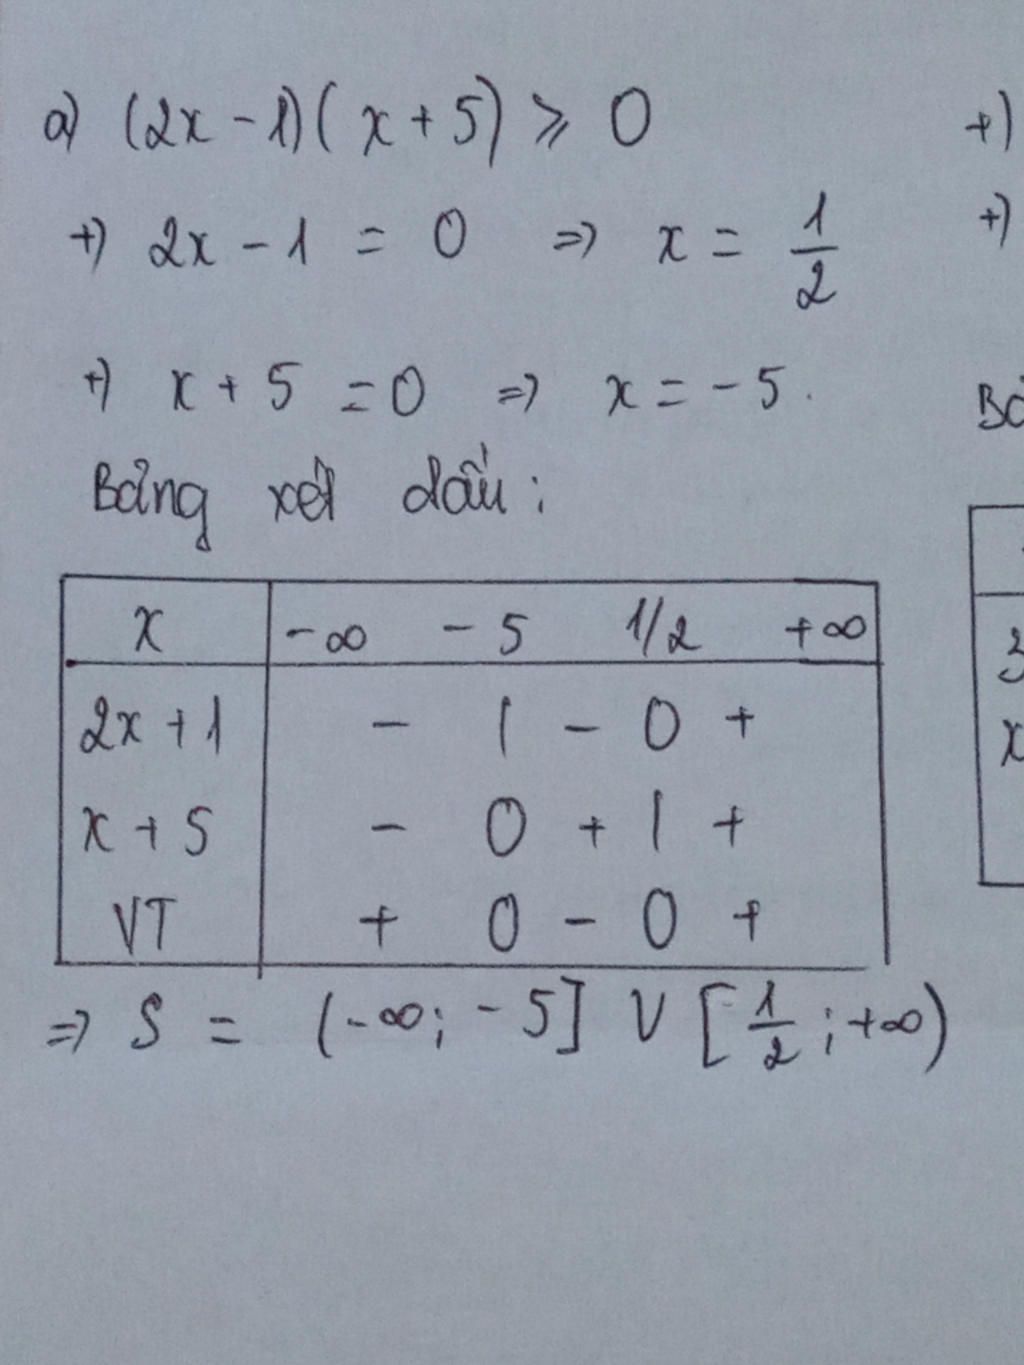 a) (2x - 1)( x + 5) ⩾ 0
+) 2x - 1 = 0 => x = 1/2
+) x + 5 = 0 => x = - 5.
Bảng xét dấu :
x -∞ - 5 1/2 +∞
2x + 1 - | - 0 +
x + 5 - 0 + | +
VT + 0 - 0 +
=> S = (-∞; - 5] ∪ [1/2; +∞)
+)
+)
3
x